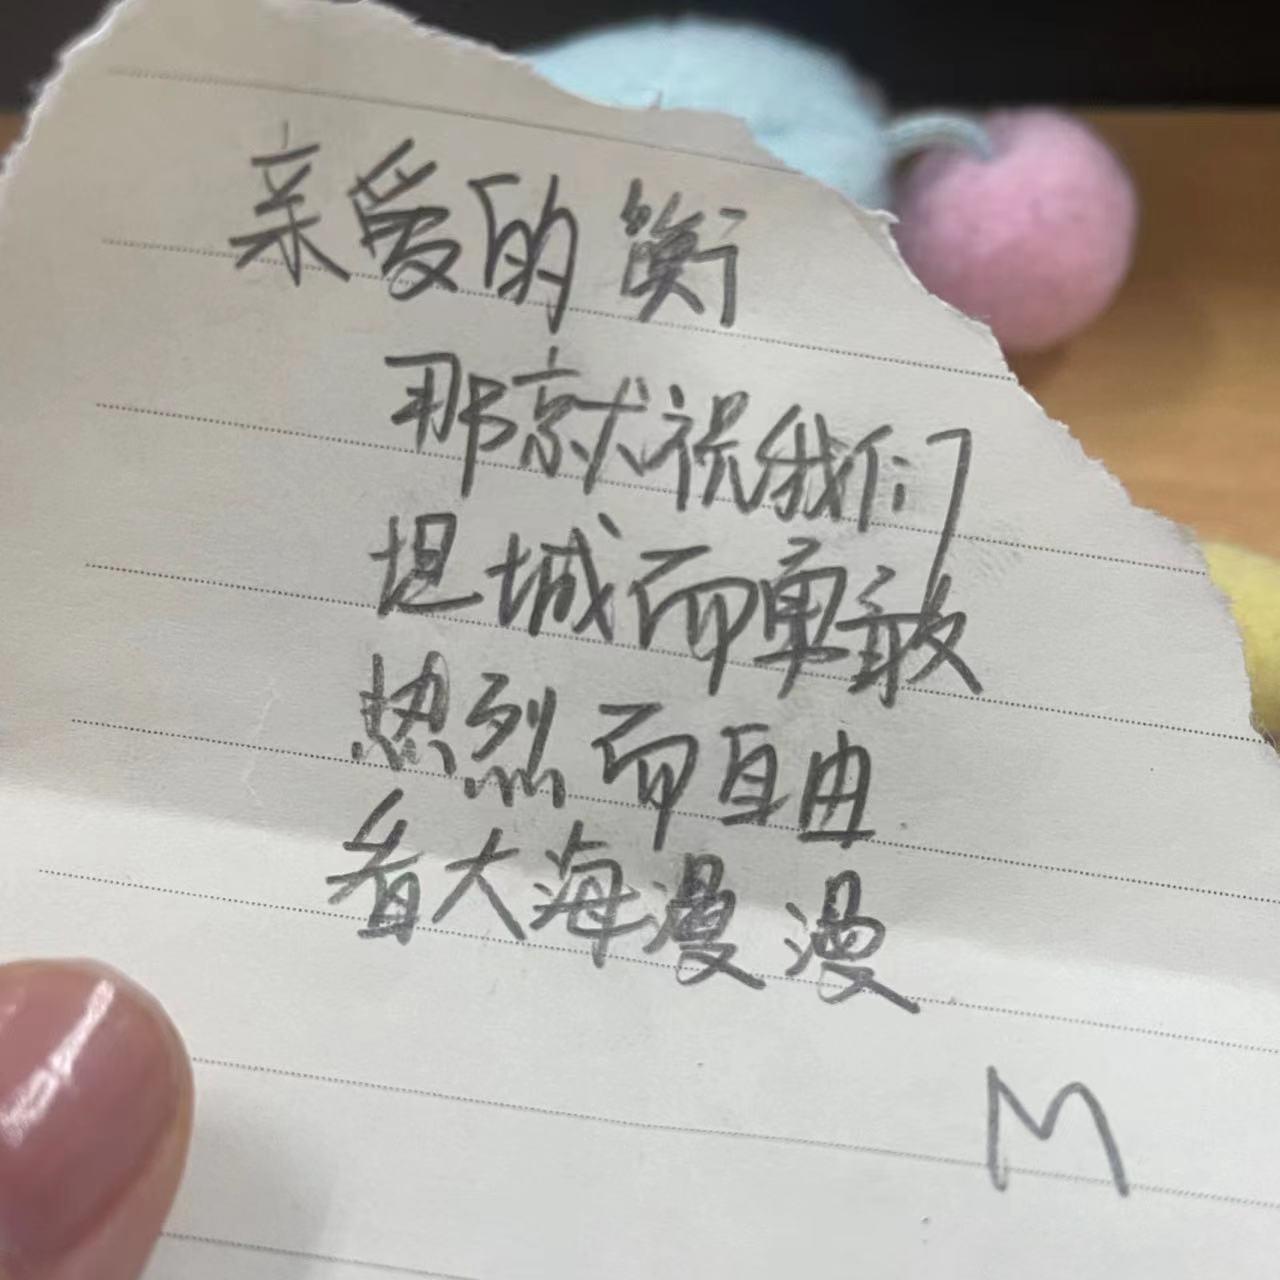 亲爱的 衡
那就祝我们
坦城而勇敢
热烈而自由
看大海漫漫
M